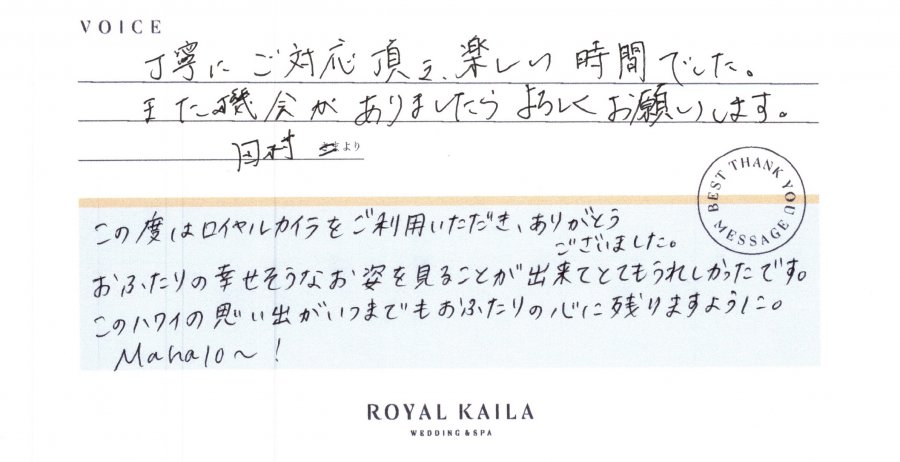 VOICE
丁寧にご対応頂き、楽しい時間でした。
また機会がありましたらよろしくお願いします。
田村 さまより
BEST THANK YOU MESSAGE
この度はロイヤルカイラをご利用いただき、ありがとう
ございました。
おふたりの幸せそうなお姿を見ることが出来てとてもうれしかったです。
このハワイの思い出がいつまでもおふたりの心に残りますように。
Mahalo～!
ROYAL KAILA
WEDDING & SPA